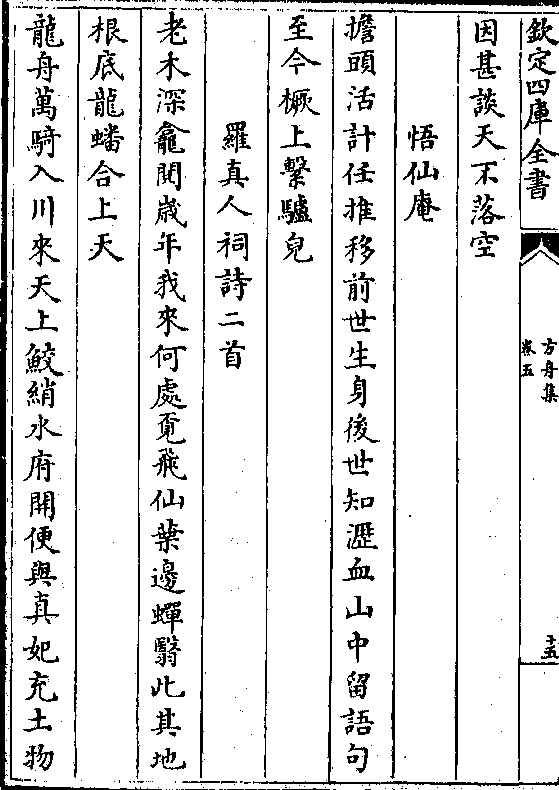 欽定四庫全書
方舟集
卷五
十五
因甚談天不落空
悟仙庵
擔頭活計任推移前世生身後世知瀝血山中留語句
至今橛上繫驢兒
羅真人祠詩二首
老木深龕閱歲年我來何處覔飛仙葉邊蟬翳此其地
根底龍蟠合上天
龍舟萬騎入川來天上鮫綃水府開便與真妃充土物